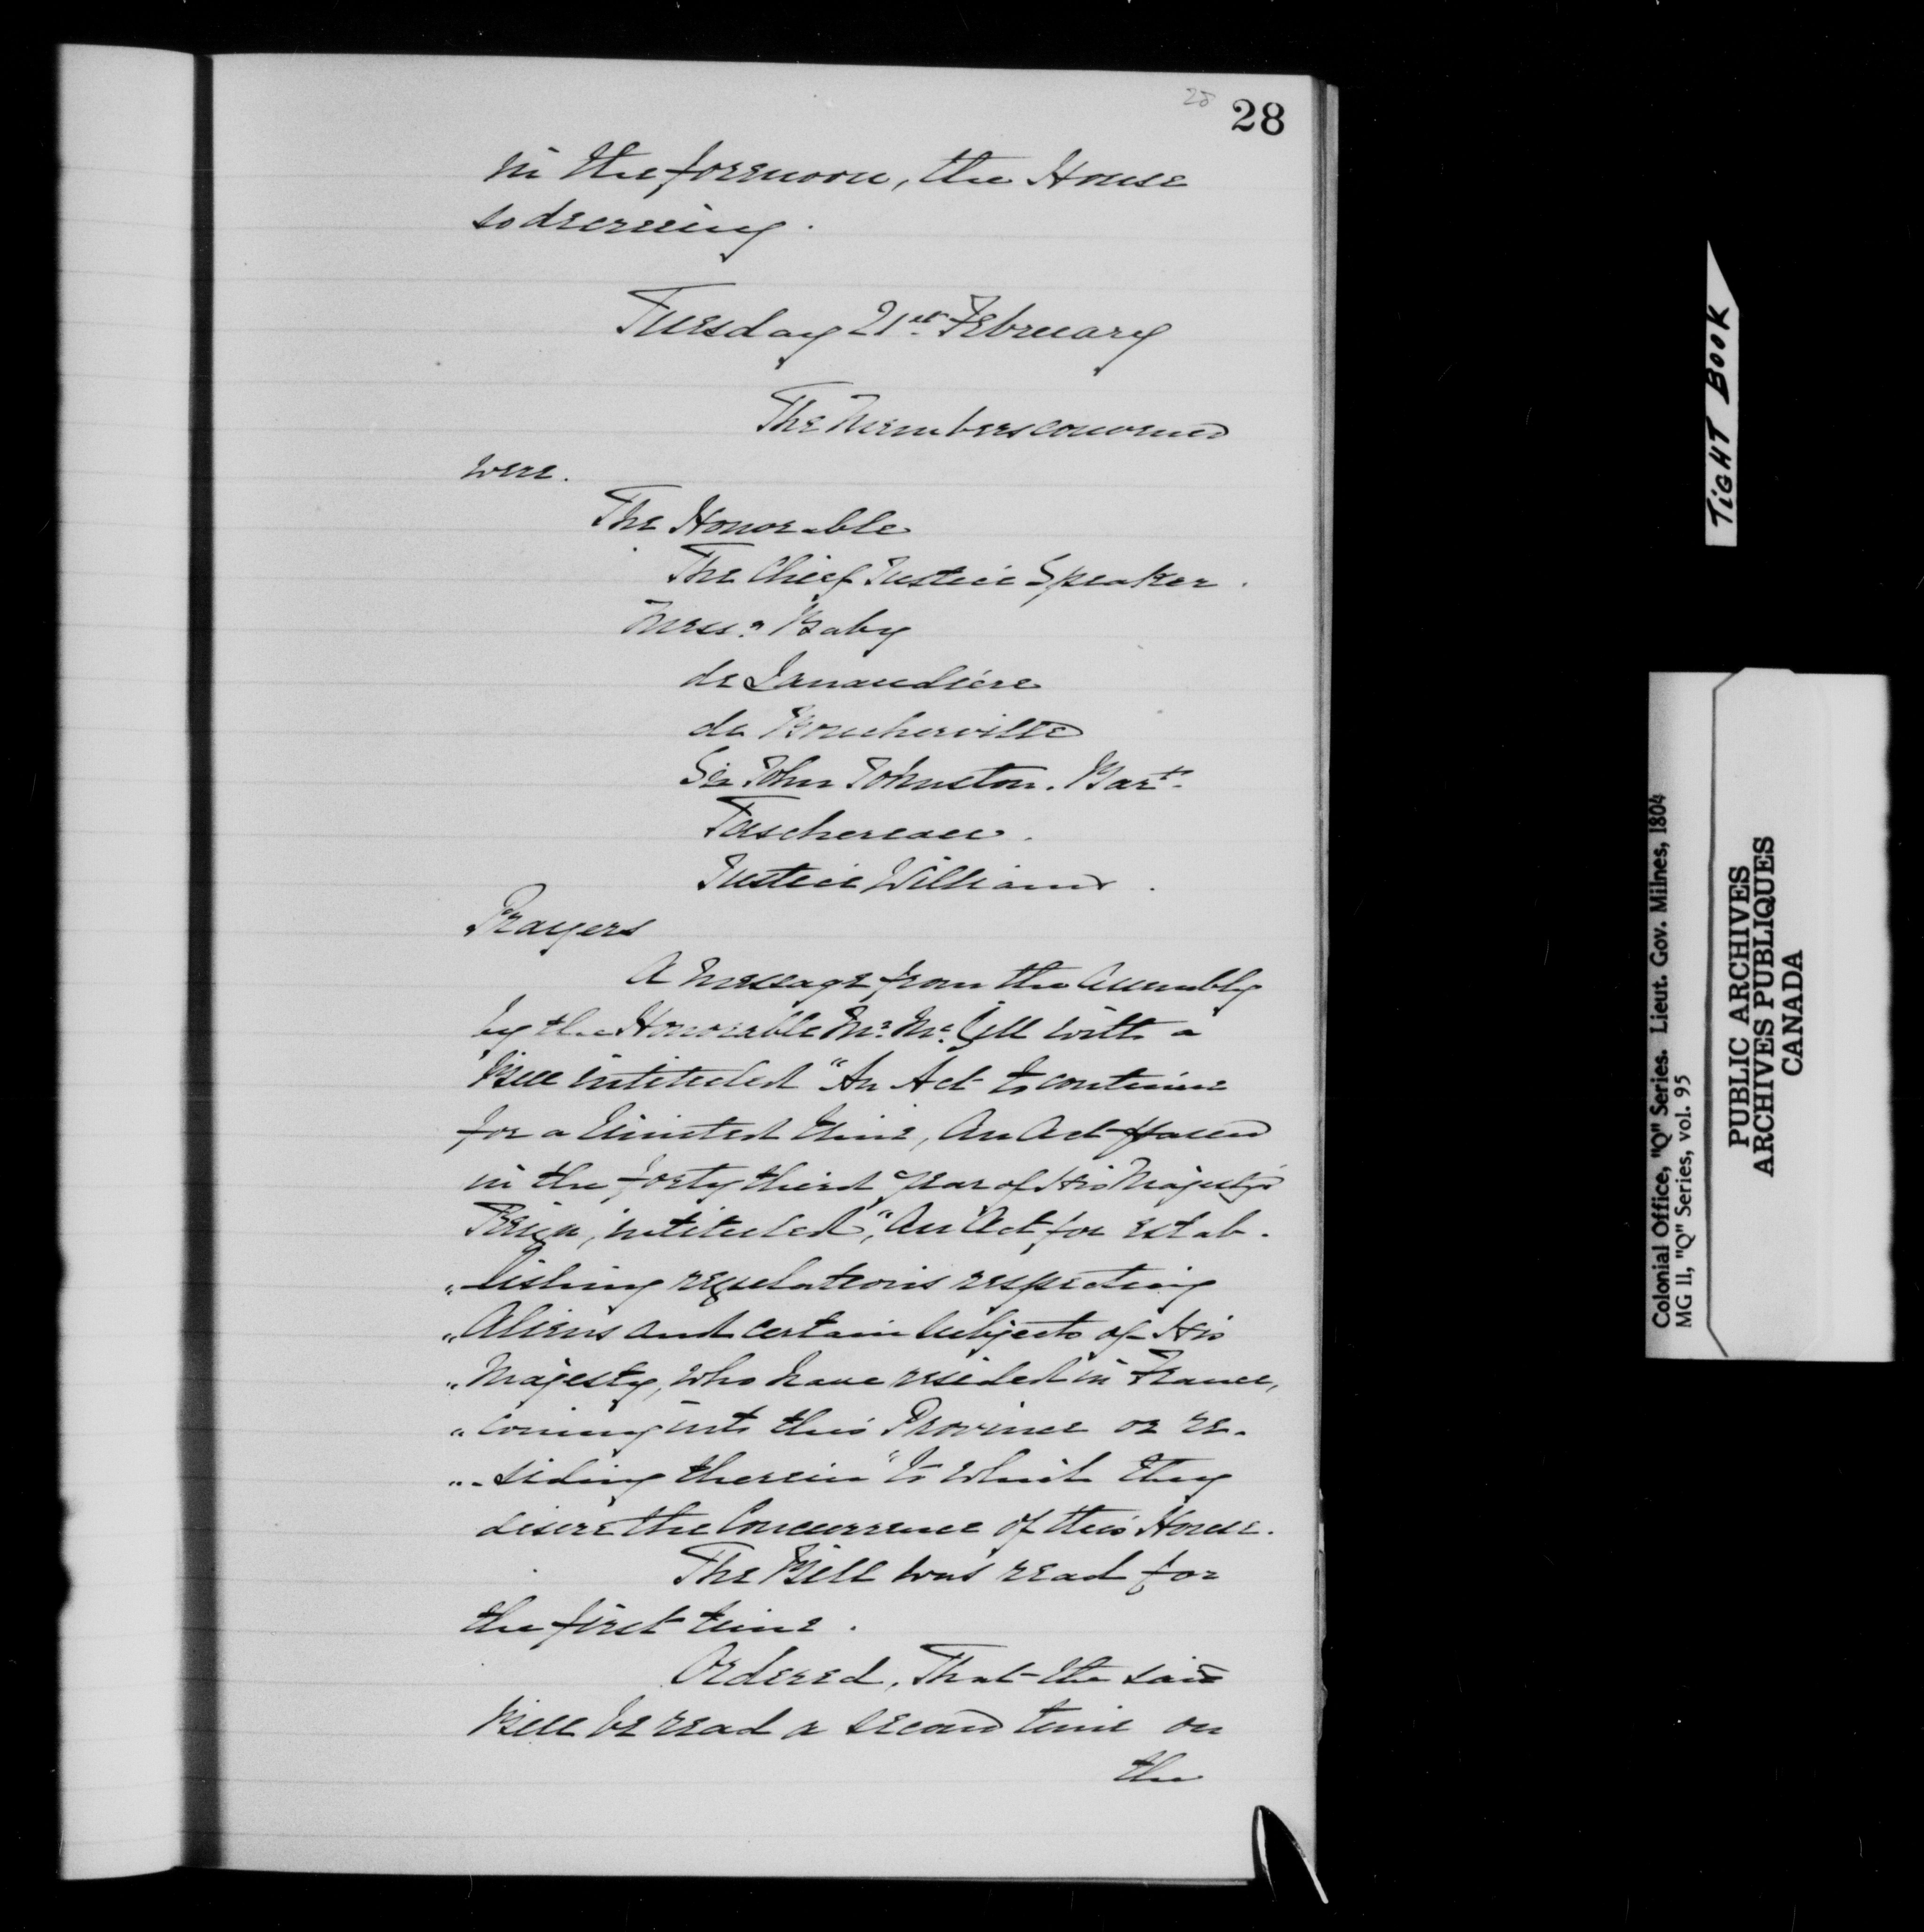 28
28
in the forenoon, the House
so decreeing.
Tuesday 21st. February
The Members convened
were.
The Honorable
The Chief Justice Speaker.
Messrs Baby
de Lanaudière
de Boucherville
Sir John Johnston. Bart.
Taschereau.
Justice Williams.
Prayers
A message from the Assembly
by the Honorable Mr. McGill with a
Bill intituled "An Act to continue
for a limited time, An Act passed
in the forty third year of His Majesty's
Reign, intituled, "An Act for estab-
"lishing regulations respecting
"Aliens and certain Subjects of His
"Majesty, who have resided in France,
"coming into this Province or re-
"-siding therein" to which they
desire the Concurrence of this House.
The Bill was read for
the first time.
Ordered, That the said
Bill be read a second time on
the
TIGHT BOOK
Colonial Office, "Q" Series. Lieut. Gov. Milnes, 1804
MG 11, "Q" Series, vol. 95
PUBLIC ARCHIVES
ARCHIVES PUBLIQUES
CANADA